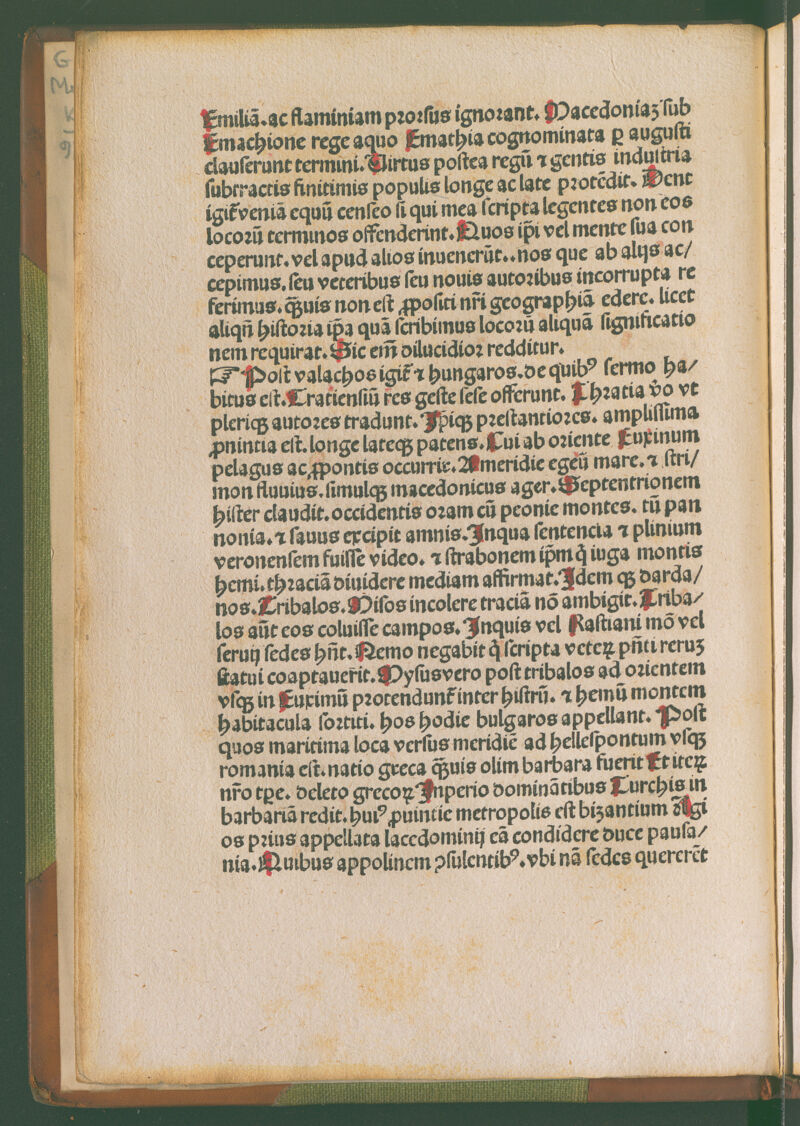 G
M
K
9
Emiliā. ac flaminiam prorsus ignorant. Macedoniaʒ sub
Emachione rege aquo Emathia cognominata ꝑ augusti
clauserunt termini. Uirtus postea regū ⁊ gentis industria
subtractis finitimis populis longe ac late protēdit. Dent
igit᷑ veniā equū censeo si qui mea scripta legentes non eos
locorū terminos offenderint. Quos ip̄i vel mente sua con
ceperunt. vel apud alios inuenerūt.. nos que ab alijs ac/
cepimus. seu veteribus seu nouis autoribus incorrupta re
ferimus. q̄ꝫuis non est ꝓpositi nr̄i geographiā edere. licet
aliqn̄ historia ip̄a quā scribimus locorū aliquā significatio
nem requirat. Sic em̄ dilucidior redditur.
☞ Post valachos igit᷑ ⁊ hungaros. de quibꝰ sermo ha/
bitus est. Tratiensiū res geste sese offerunt. Thratia v̄o vt
pleriqꝫ autores tradunt. Jp̄iqꝫ prestantiores. amplissima
ꝓuintia est. longe lateqꝫ patens. Cui ab oriente Euxinum
pelagus ac ꝓpontis occurrit. A meridie egeū mare. ⁊ stri/
mon fluuius. simulqꝫ macedonicus ager. Septentrionem
hister claudit. occidentis oram cū peonie montes. tū pan
nonia. ⁊ sauus excipit amnis. Jnqua sentencia ⁊ plinium
veronensem fuisse video. ⁊ strabonem ip̄m q̄ iuga montis
hemi. thraciā diuidere mediam affirmat. Jdem qꝫ darda/
nos. Tribalos. Misos incolere traciā nō ambigit. Triba/
los aūt eos coluisse campos. Jnquis vel Rastiani mō vel
seruij sedes hn̄t. Nemo negabit q̄ scripta veteꝝ pn̄ti reruꝫ
statui coaptauerit. Mysusvero post tribalos ad orientem
vsqꝫ in Euximū protendunt᷑ inter histrū. ⁊ hemū montem
habitacula sortiti. hos hodie bulgaros appellant. Post
quos maritima loca versus meridiē ad hellespontum vsqꝫ
romania est. natio greca q̄ꝫuis olim barbara fuerit Et iteꝝ
nr̄o tp̄e. deleto grecoꝝ Jnperio dominātibus Turchis in
barbariā redit. huiꝰ ꝓuintie metropolis est bizantium Agi
os prius appellata lacedominij eā condidere duce pausa/
nia. Quibus appolinem ꝯsulentibꝰ. vbi nā sedes quererēt